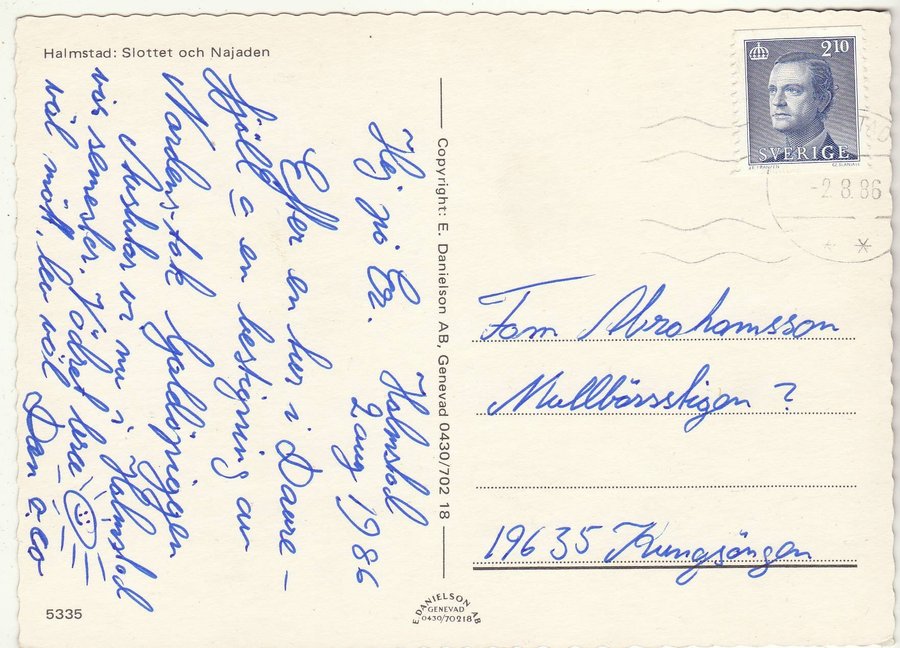 Halmstad: Slottet och Najaden
Hej på Er. Halmstad
2 aug 1986
Efter en tur i Davre-
fjäll o en bestigning av
Nordens-tak
avslutar vi nu i Halmstad
vår semester. Vädret bra
väl mött, lev väl Dan o.co
5335
Copyright: E. Danielson AB, Genevad 0430/702 18
E. DANIELSON AB
GENEVAD
0430/70218
2 10
SVERIGE
-2.8.86
Fam Abrahamsson
Mullbärsstigen ?
19635 Kungsängen